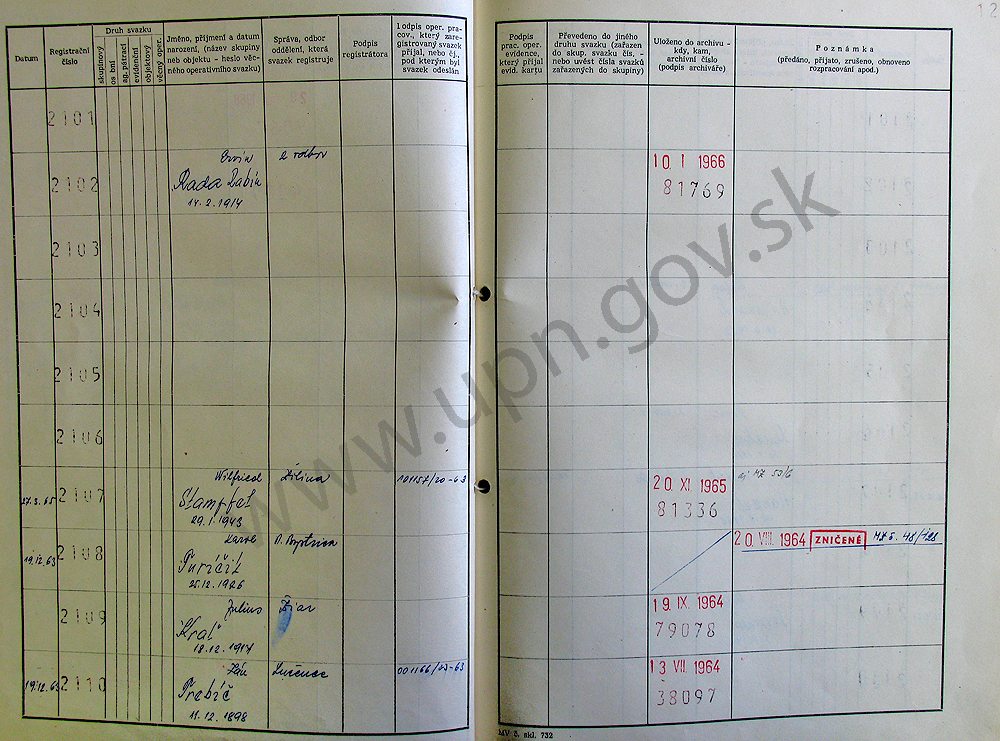 12
Datum
Registrační číslo
Druh svazku
skupinový
os bní
ag. pátrací
evidenční
objektový
věcný oper.
Jméno, příjmení a datum
narození, (název skupiny
neb objektu - heslo věc-
ného operativního svazku)
Správa, odbor
oddělení, která
svazek registruje
Podpis
registrátora
Podpis oper. pra-
cov., který zare-
gistrovaný svazek
přijal, nebo čj.,
pod kterým byl
svazek odeslán
Podpis
prac. oper.
evidence,
který přijal
evid. kartu
Převedeno do jiného
druhu svazku (zařazen
do skup. svazku čís, -
nebo uvést čísla svazků
zařazených do skupiny)
Uloženo do archivu -
kdy, kam,
archivní číslo
(podpis archiváře)
Poznámka
(předáno, přijato, zrušeno, obnoveno
rozpracování apod.)
2101
2102
Ervín
2 odbor
Rada Rabín
14.2.1914
10. I 1966
81769
2103
2104
2105
2106
27.3.65
2107
Wilfried
Žilina
Stampfel
29.1.1943
20 XI. 1965
81336
19.12.63
2108
Karol
B. Bystrica
25.12.1926
20. VIII. 1964 ZNIČENÉ
2109
Julius
Žiar
"Kral"
18.12.1917
19. IX. 1964
79078
19.12.63
2110
Ján
Lučenec
Trebič
11.12.1898
001166/23-63
13 VII. 1964
38097
MV č. skl. 732
www.upn.gov.sk